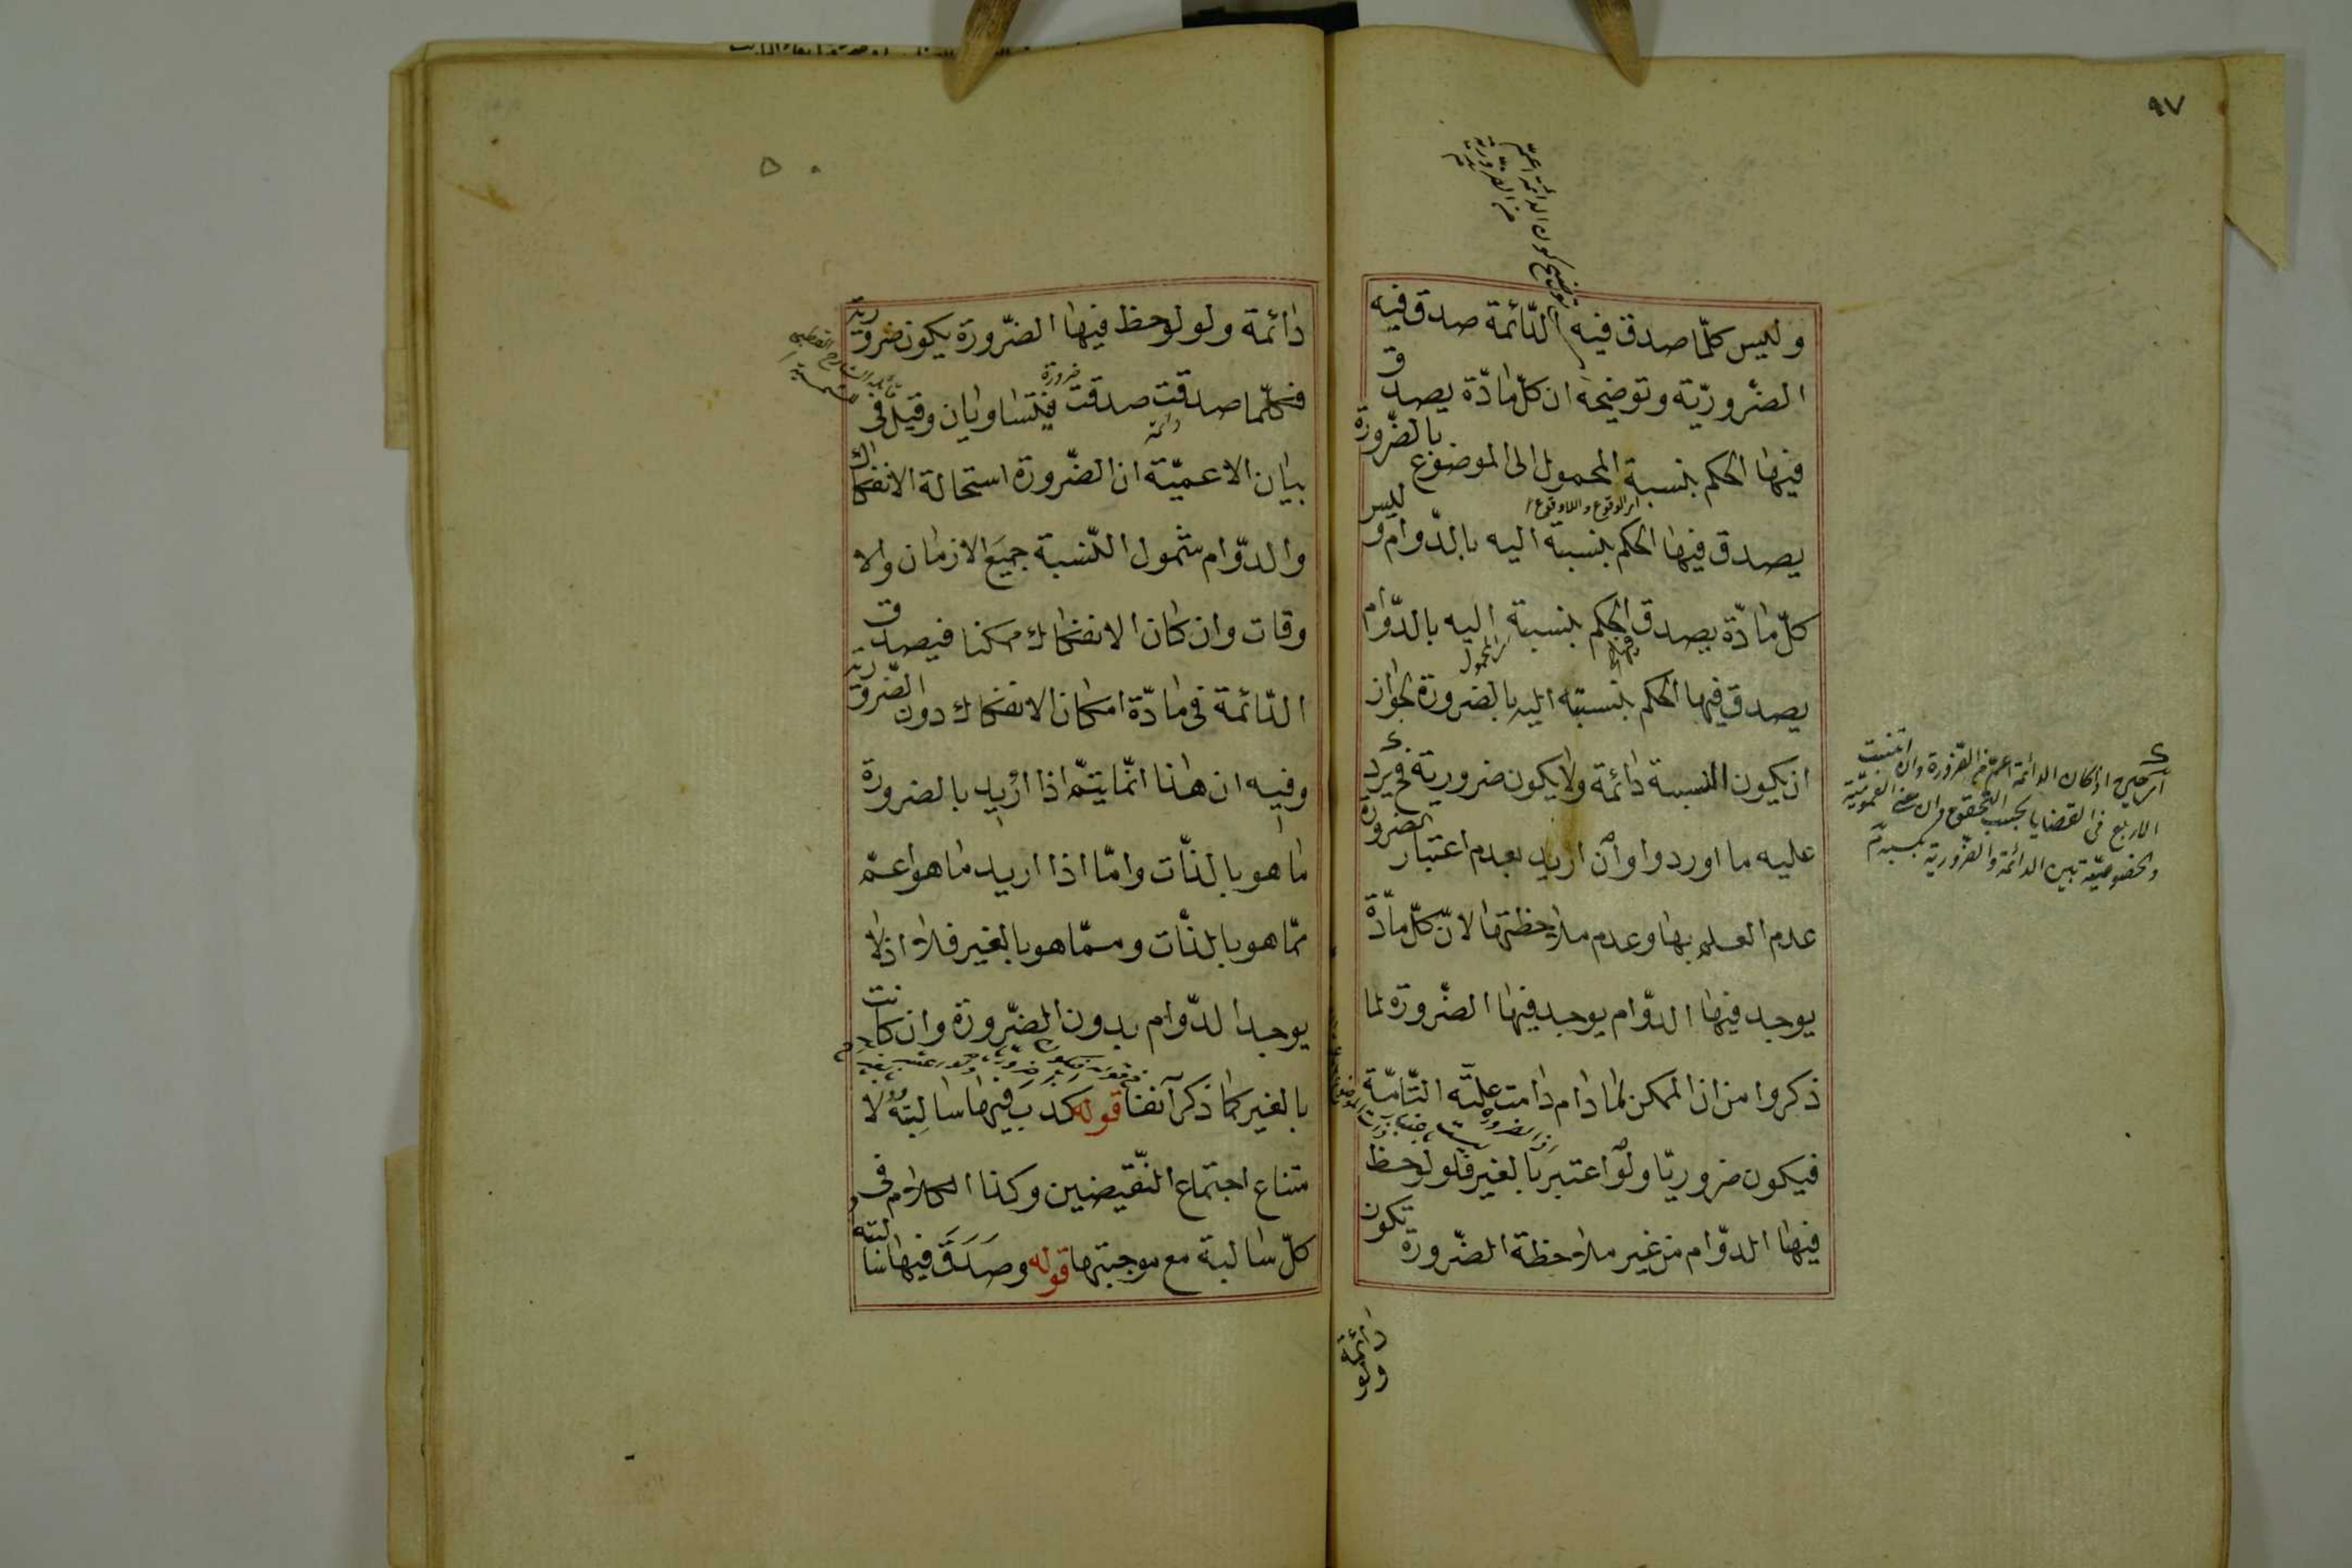 ٩٧
وليس كلّما صدق فيه الدّائمة صدق فيه
الضّروريّة وتوضيحه ان كلّ مادّة يصدق
فيها الحكم بنسبة المحمول الى الموضوع بالضّرورة
يصدق فيها الحكم بنسبة اليه بالدّوام وليس
كلّ مادّة يصدق الحكم بنسبة اليه بالدّوام
يصدق فيها الحكم بنسبته اليه بالضرورة لجواز
ان يكون النسبة دائمة ولا يكون ضرورية فح يرد
عليه ما اوردوا وان اريد بعدم اعتبار الضرورة
عدم العلم بها وعدم ملاحظتها لانّ كلّ مادّة
يوجد فيها الدّوام يوجد فيها الضّرورة لما
ذكروا من ان الممكن لما دام دامت علّته التّامّة
فيكون ضروريّا ولو اعتبر بالغير فلو لوحظ
فيها الدّوام من غير ملاحظة الضّرورة تكون
دائمة ولو
دائمة ولو لوحظ فيها الضّرورة يكون ضروريّة
فكلّما صدقت صدقت فيتساويان وقيل في
دائمة
ضرورة
بيان الاعميّة ان الضّرورة استحالة الانفكاك
والدّوام شمول النّسبة جميع الازمان والا
وقات وان كان الانفكاك ممكنا فيصدق
الدّائمة في مادّة امكان الانفكاك دون الضّروريّة
وفيه ان هذا انّما يتمّ اذا اريد بالضرورة
ما هو بالذّات وامّا اذا اريد ما هو اعمّ
ممّا هو بالذّات وممّا هو بالغير فلا اذ لا
يوجد الدّوام بدون الضّرورة وان كانت
بالغير كما ذكر آنفا قوله كدب فيها سالبته لا
متناع اجتماع النّقيضين وكذا الكلام في
كلّ سالبة مع موجبتها قوله وصَدَقَ فيها سالبته